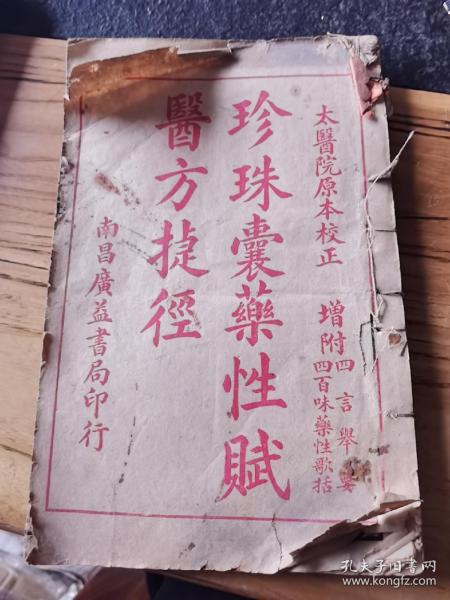 太醫院原本校正
增附四言舉要
四百味藥性歌括
珍珠囊藥性賦
醫方捷徑
南昌廣益書局印行
孔夫子旧书网
www.kongfz.com